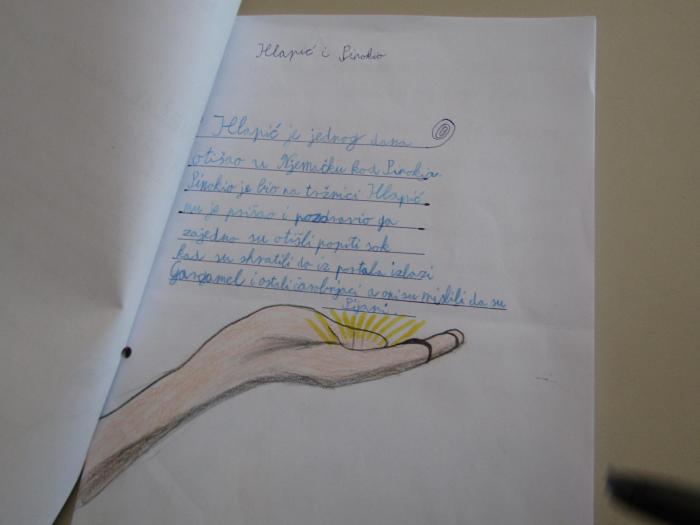 Hlapić i Pinokio
Hlapić je jednog dana
otišao u Njemačku kod Pinokia.
Pinokio je bio na tržnici Hlapić
mu je prišao i pozdravio ga
zajedno su otišli popiti sok
kad su shvatili da iz portala izlazi
Gargamel i ostali čarobnjaci a oni su mislili da su
Pijani.